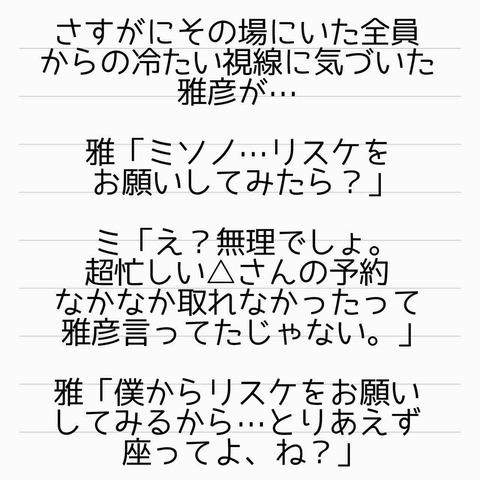 さすがにその場にいた全員
からの冷たい視線に気づいた
雅彦が…
雅「ミソノ…リスケを
お願いしてみたら？」
ミ「え？無理でしょ。
超忙しい△さんの予約
なかなか取れなかったって
雅彦言ってたじゃない。」
雅「僕からリスケをお願い
してみるから…とりあえず
座ってよ、ね？」